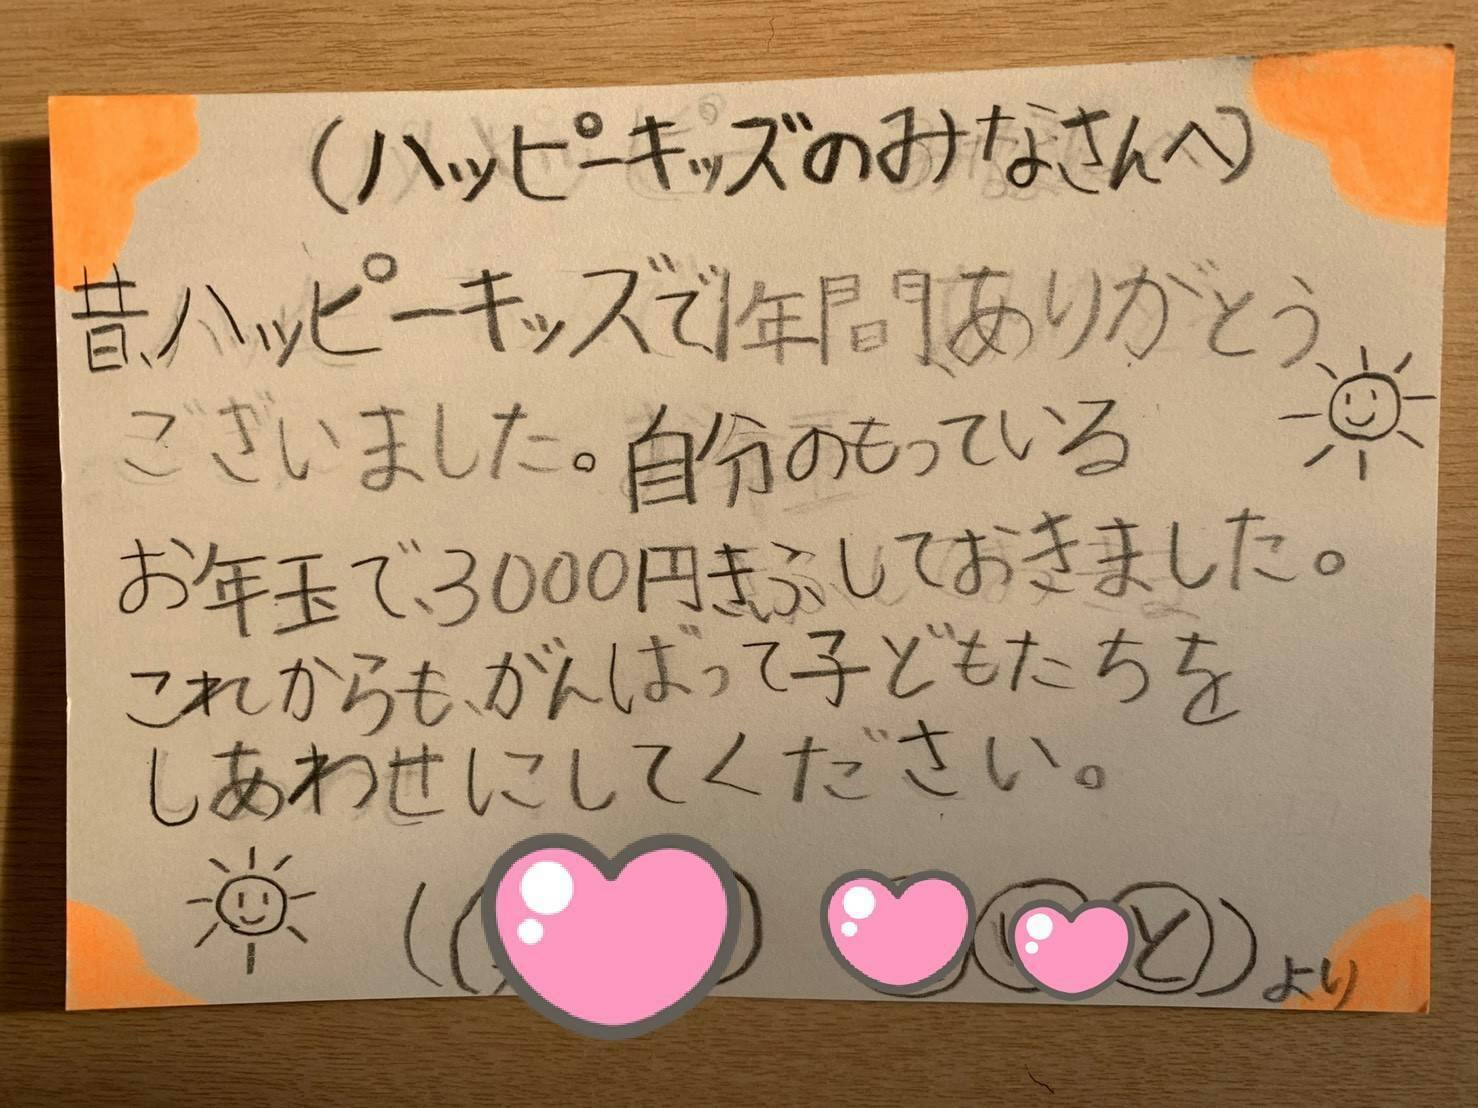 (ハッピーキッズのみなさんへ)
昔、ハッピーキッズで1年間、ありがとう
ございました。自分のもっている
お年玉で、3000円きふしておきました。
これからも、がんばって子どもたちを
しあわせにしてください。
と)より